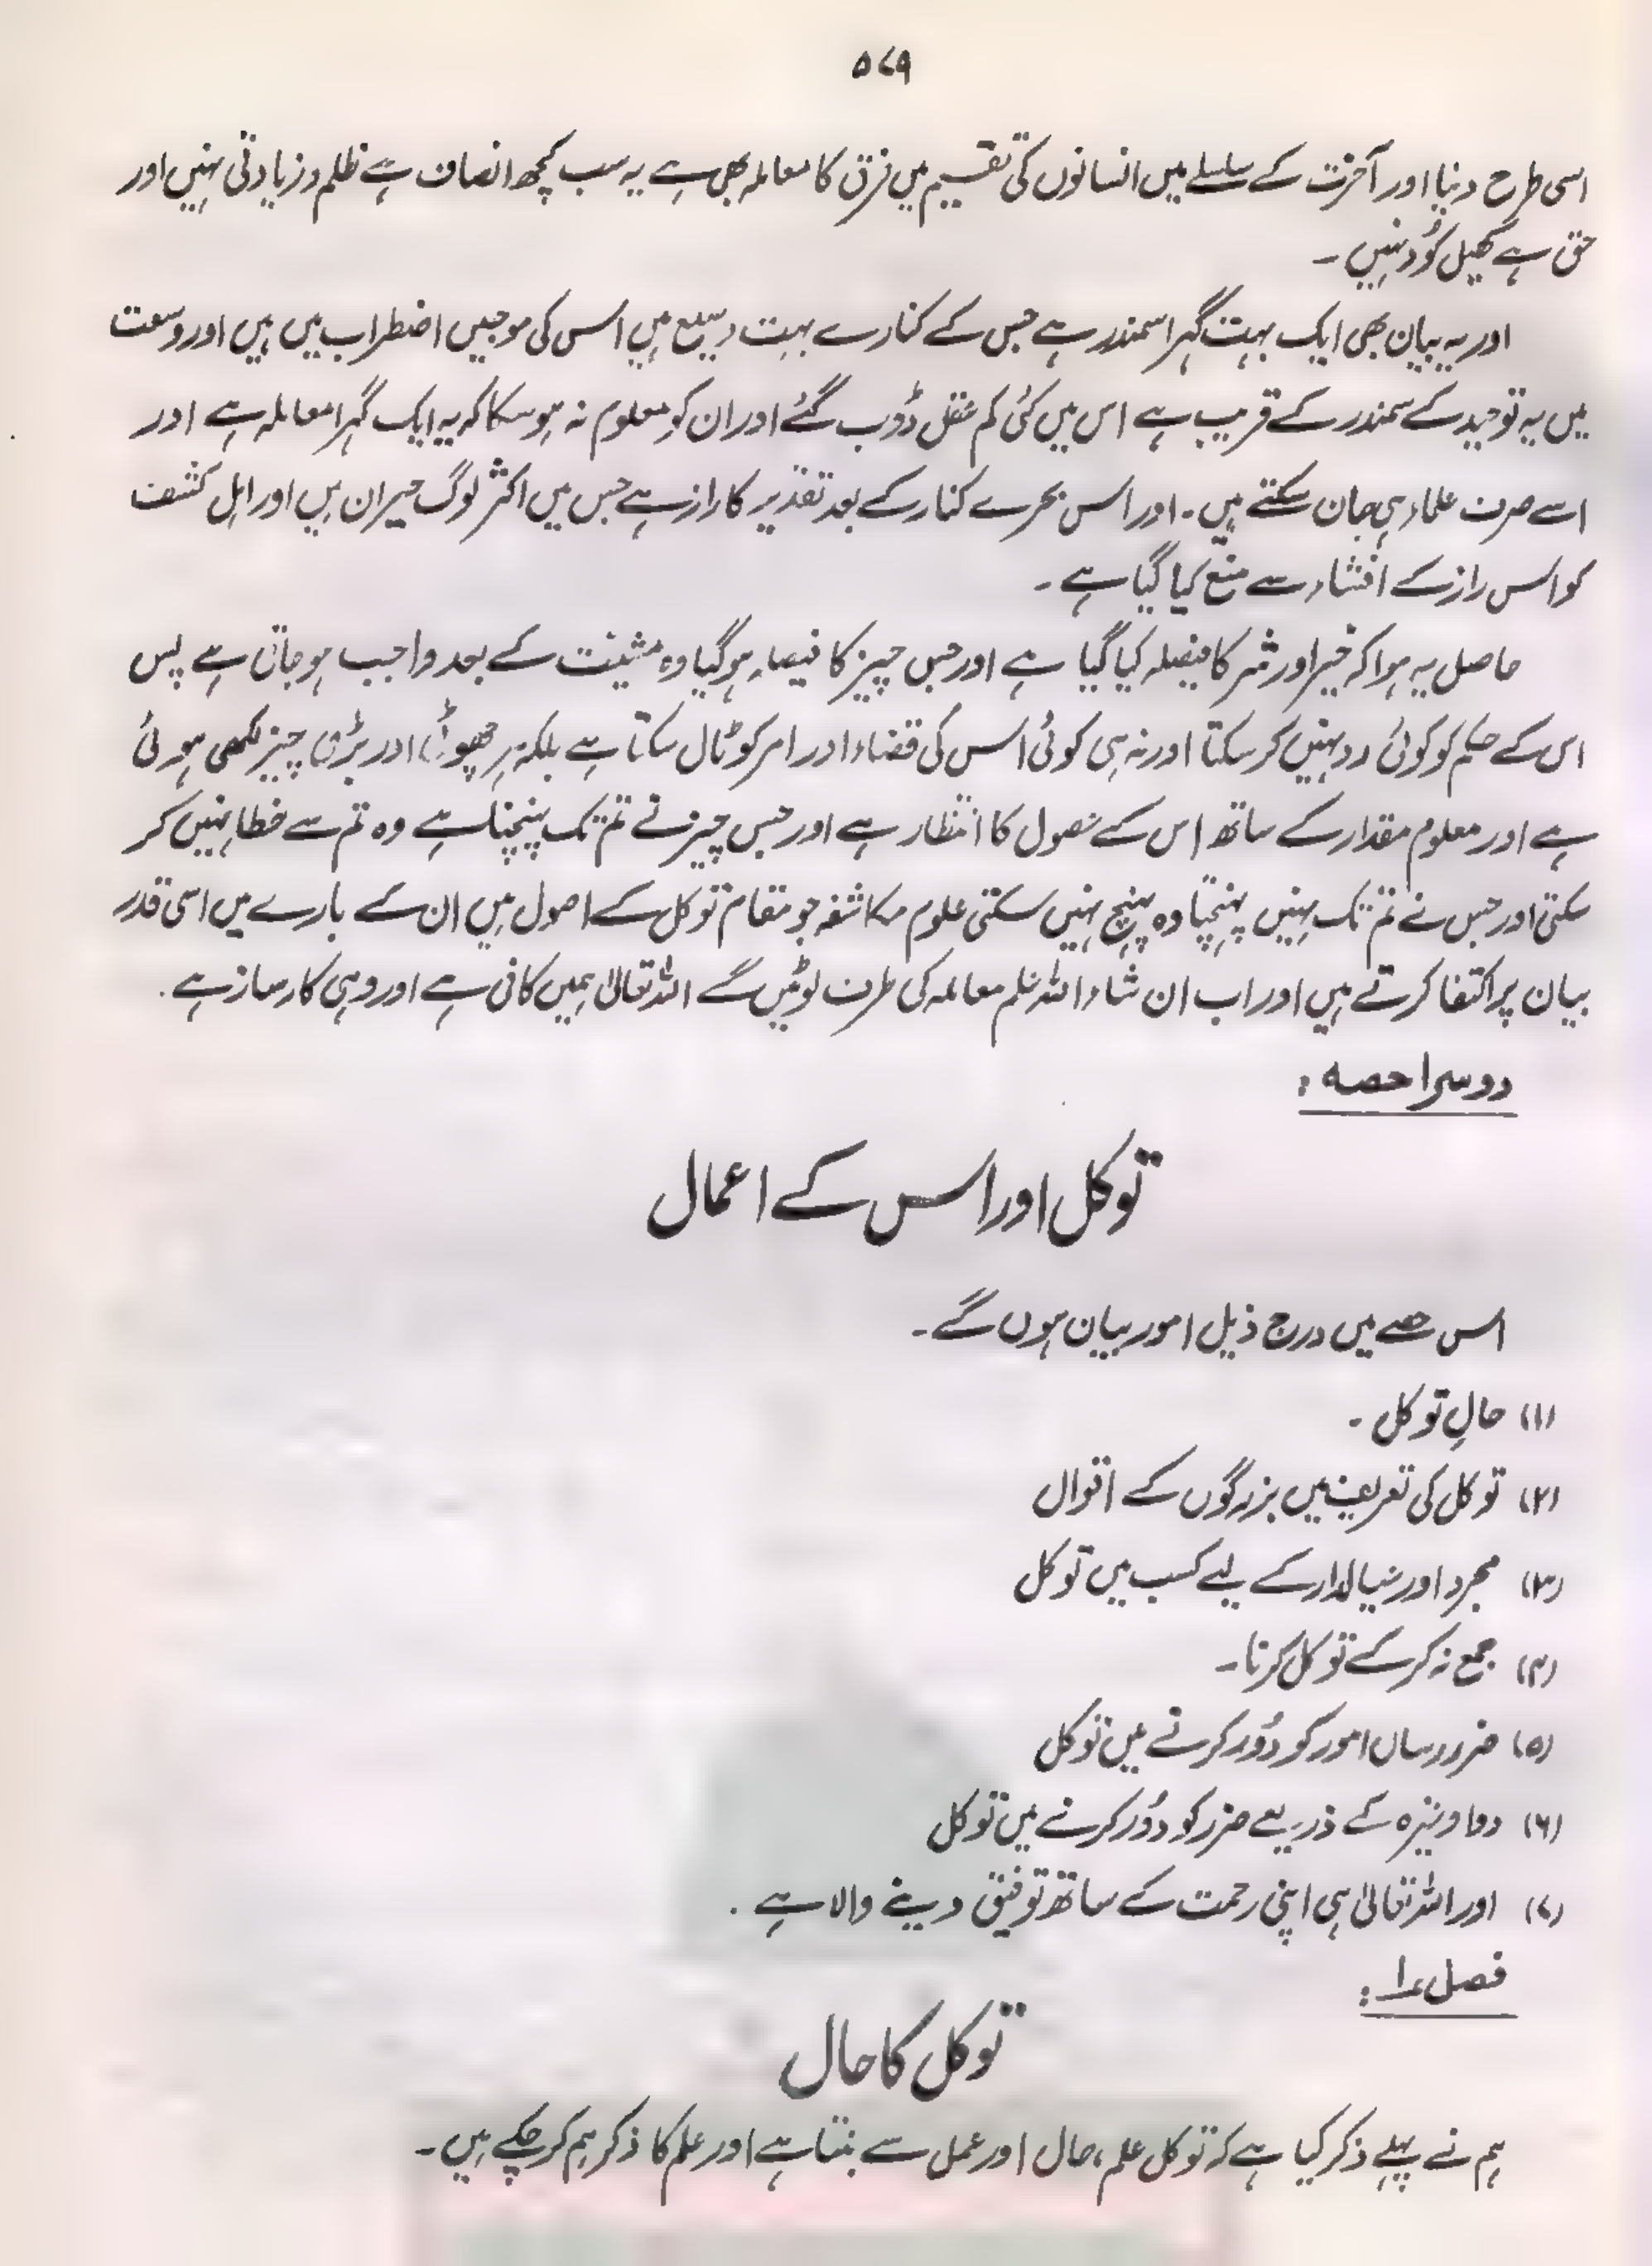 ۵۷۹
اسی طرح دنیا اور آخرت کے سلسلے میں انسانوں کی تقسیم میں فرق کا معاملہ بھی ہے یہ سب کچھ انصاف ہے ظلم و زیادتی نہیں اور
حق ہے کھیل کُود نہیں ۔
اور یہ بیان بھی ایک بہت گہرا سمندر ہے جس کے کنارے بہت وسیع ہیں اس کی موجیں اضطراب میں ہیں اور وسعت
میں یہ توحید کے سمندر کے قریب ہے اس میں کئی کم عقل ڈوب گئے اور ان کو معلوم نہ ہو سکا کہ یہ ایک گہرا معاملہ ہے اور
اسے صرف علماء ہی جان سکتے ہیں ۔ اور اس بحرے کنار کے بعد تقدیر کا راز ہے جس میں اکثر لوگ حیران ہیں اور اہل کشف
کو اس راز کے افشاء سے منع کیا گیا ہے ۔
حاصل یہ ہوا کہ خیر اور شر کا فیصلہ کیا گیا ہے اور جس چیز کا فیصلہ ہو گیا وہ مشیئت کے بعد واجب ہو جاتی ہے پس
اس کے حکم کو کوئی رد نہیں کر سکتا اور نہ ہی کوئی اس کی قضاء اور امر کو ٹال سکتا ہے بلکہ ہر چھوٹی اور بڑی چیز لکھی ہوئی
ہے اور معلوم مقدار کے ساتھ اس کے حصول کا انتظار ہے اور جس چیز نے تم تک پہنچنا ہے وہ تم سے خطا نہیں کر
سکتی اور جس نے تم تک نہیں پہنچنا وہ پہنچ نہیں سکتی علوم مکاشفہ جو مقام توکل کے اصول ہیں ان کے بارے میں اسی قدر
بیان پر اکتفا کرتے ہیں اور اب ان شاء اللہ علم معاملہ کی طرف لوٹیں گے اللہ تعالیٰ ہمیں کافی ہے اور وہی کارساز ہے ۔
دوسرا حصہ :
توکل اور اس کے اعمال
اس حصے میں درج ذیل امور بیان ہوں گے ۔
(۱) حالِ توکل ۔
(۲) توکل کی تعریف میں بزرگوں کے اقوال
(۳) مجرد اور عیالدار کے لیے کسب میں توکل
(۴) جمع نہ کر کے توکل کرنا ۔
(۵) ضرر رساں امور کو دُور کرنے میں توکل
(۶) دوا وغیرہ کے ذریعے ضرر کو دُور کرنے میں توکل
(۷) اور اللہ تعالیٰ ہی اپنی رحمت کے ساتھ توفیق دینے والا ہے ۔
فصل ۱ :
توکل کا حال
ہم نے پہلے ذکر کیا ہے کہ توکل علم، حال اور عمل سے بنتا ہے اور علم کا ذکر ہم کر چکے ہیں ۔